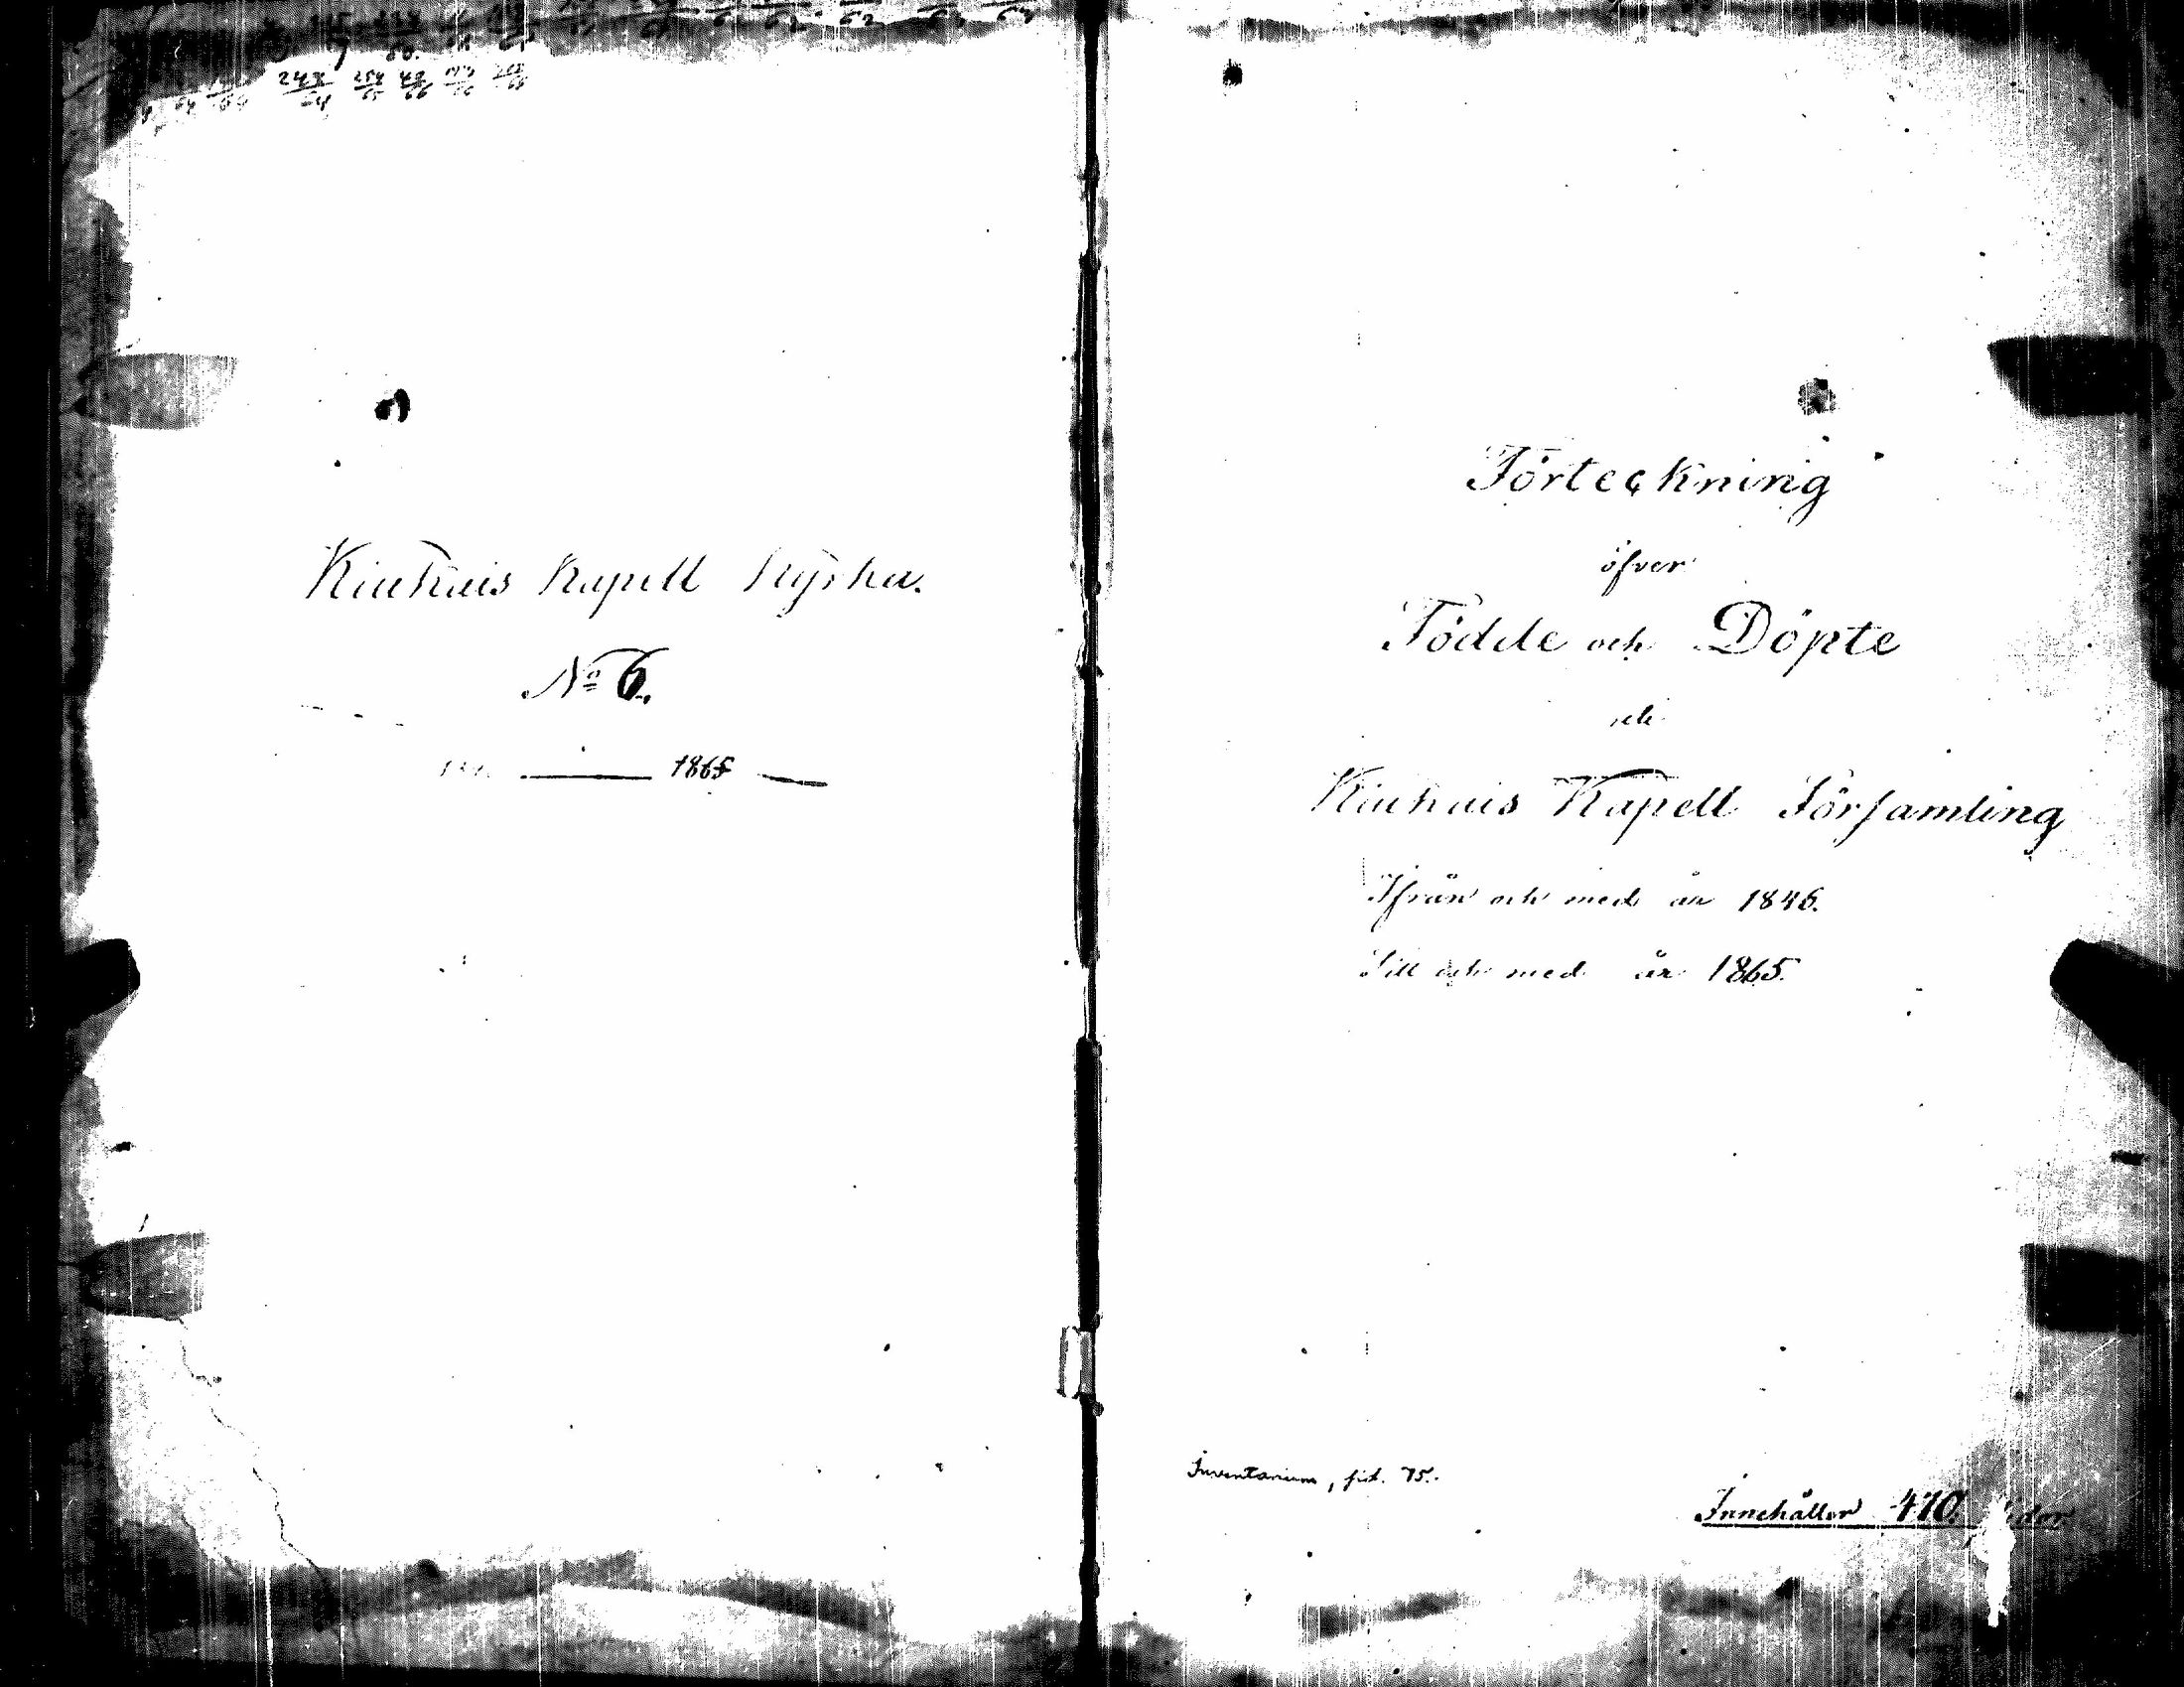 Kiukais Kapell Kyrka.
No 6.
1865
Förteckning
öfver
Födde och Döpte
uti
Kiukais Kapell Församling
Ifrån och med år 1846.
Till och med år 1865.
Inventarium, sid. 75.
Innehåller 410.